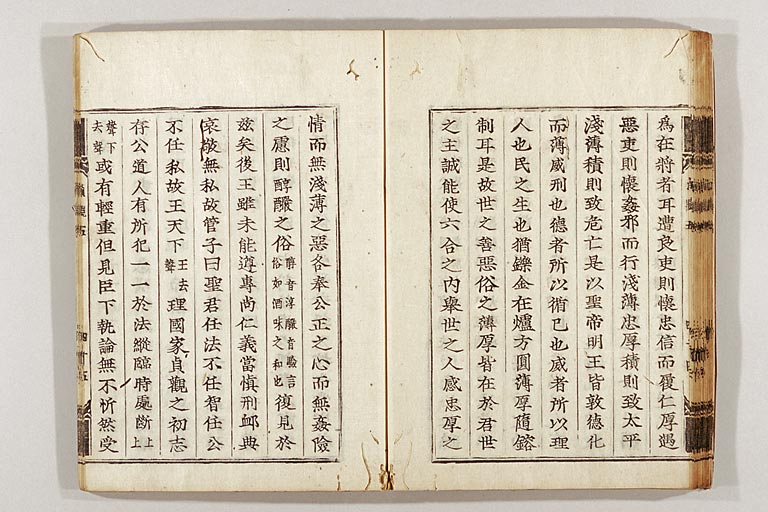 為在將者耳遭良吏則懷忠信而履仁厚遇
惡吏則懷姦邪而行淺薄忠厚積則致太平
淺薄積則致危亡是以聖帝明王皆敦德化
而薄威刑也德者所以循己也威者所以理
人也民之生也猶鑠金在爐方圓薄厚隨鎔
制耳是故世之善惡俗之薄厚皆在於君世
之主誠能使六合之內舉世之人感忠厚之
情而無淺薄之惡各奉公正之心而無姦險
之慮則醇醲之俗醇音淳醲音驗言俗如酒味之和也復見於
玆矣後王雖未能遵專尚仁義當慎刑䘏典
哀敬無私故管子曰聖君任法不任智任公
不任私故王天下王去聲理國家貞觀之初志
存公道人有所犯一一於法縱臨時處斷上上
聲下去聲或有輕重但見臣下執論無不忻然受